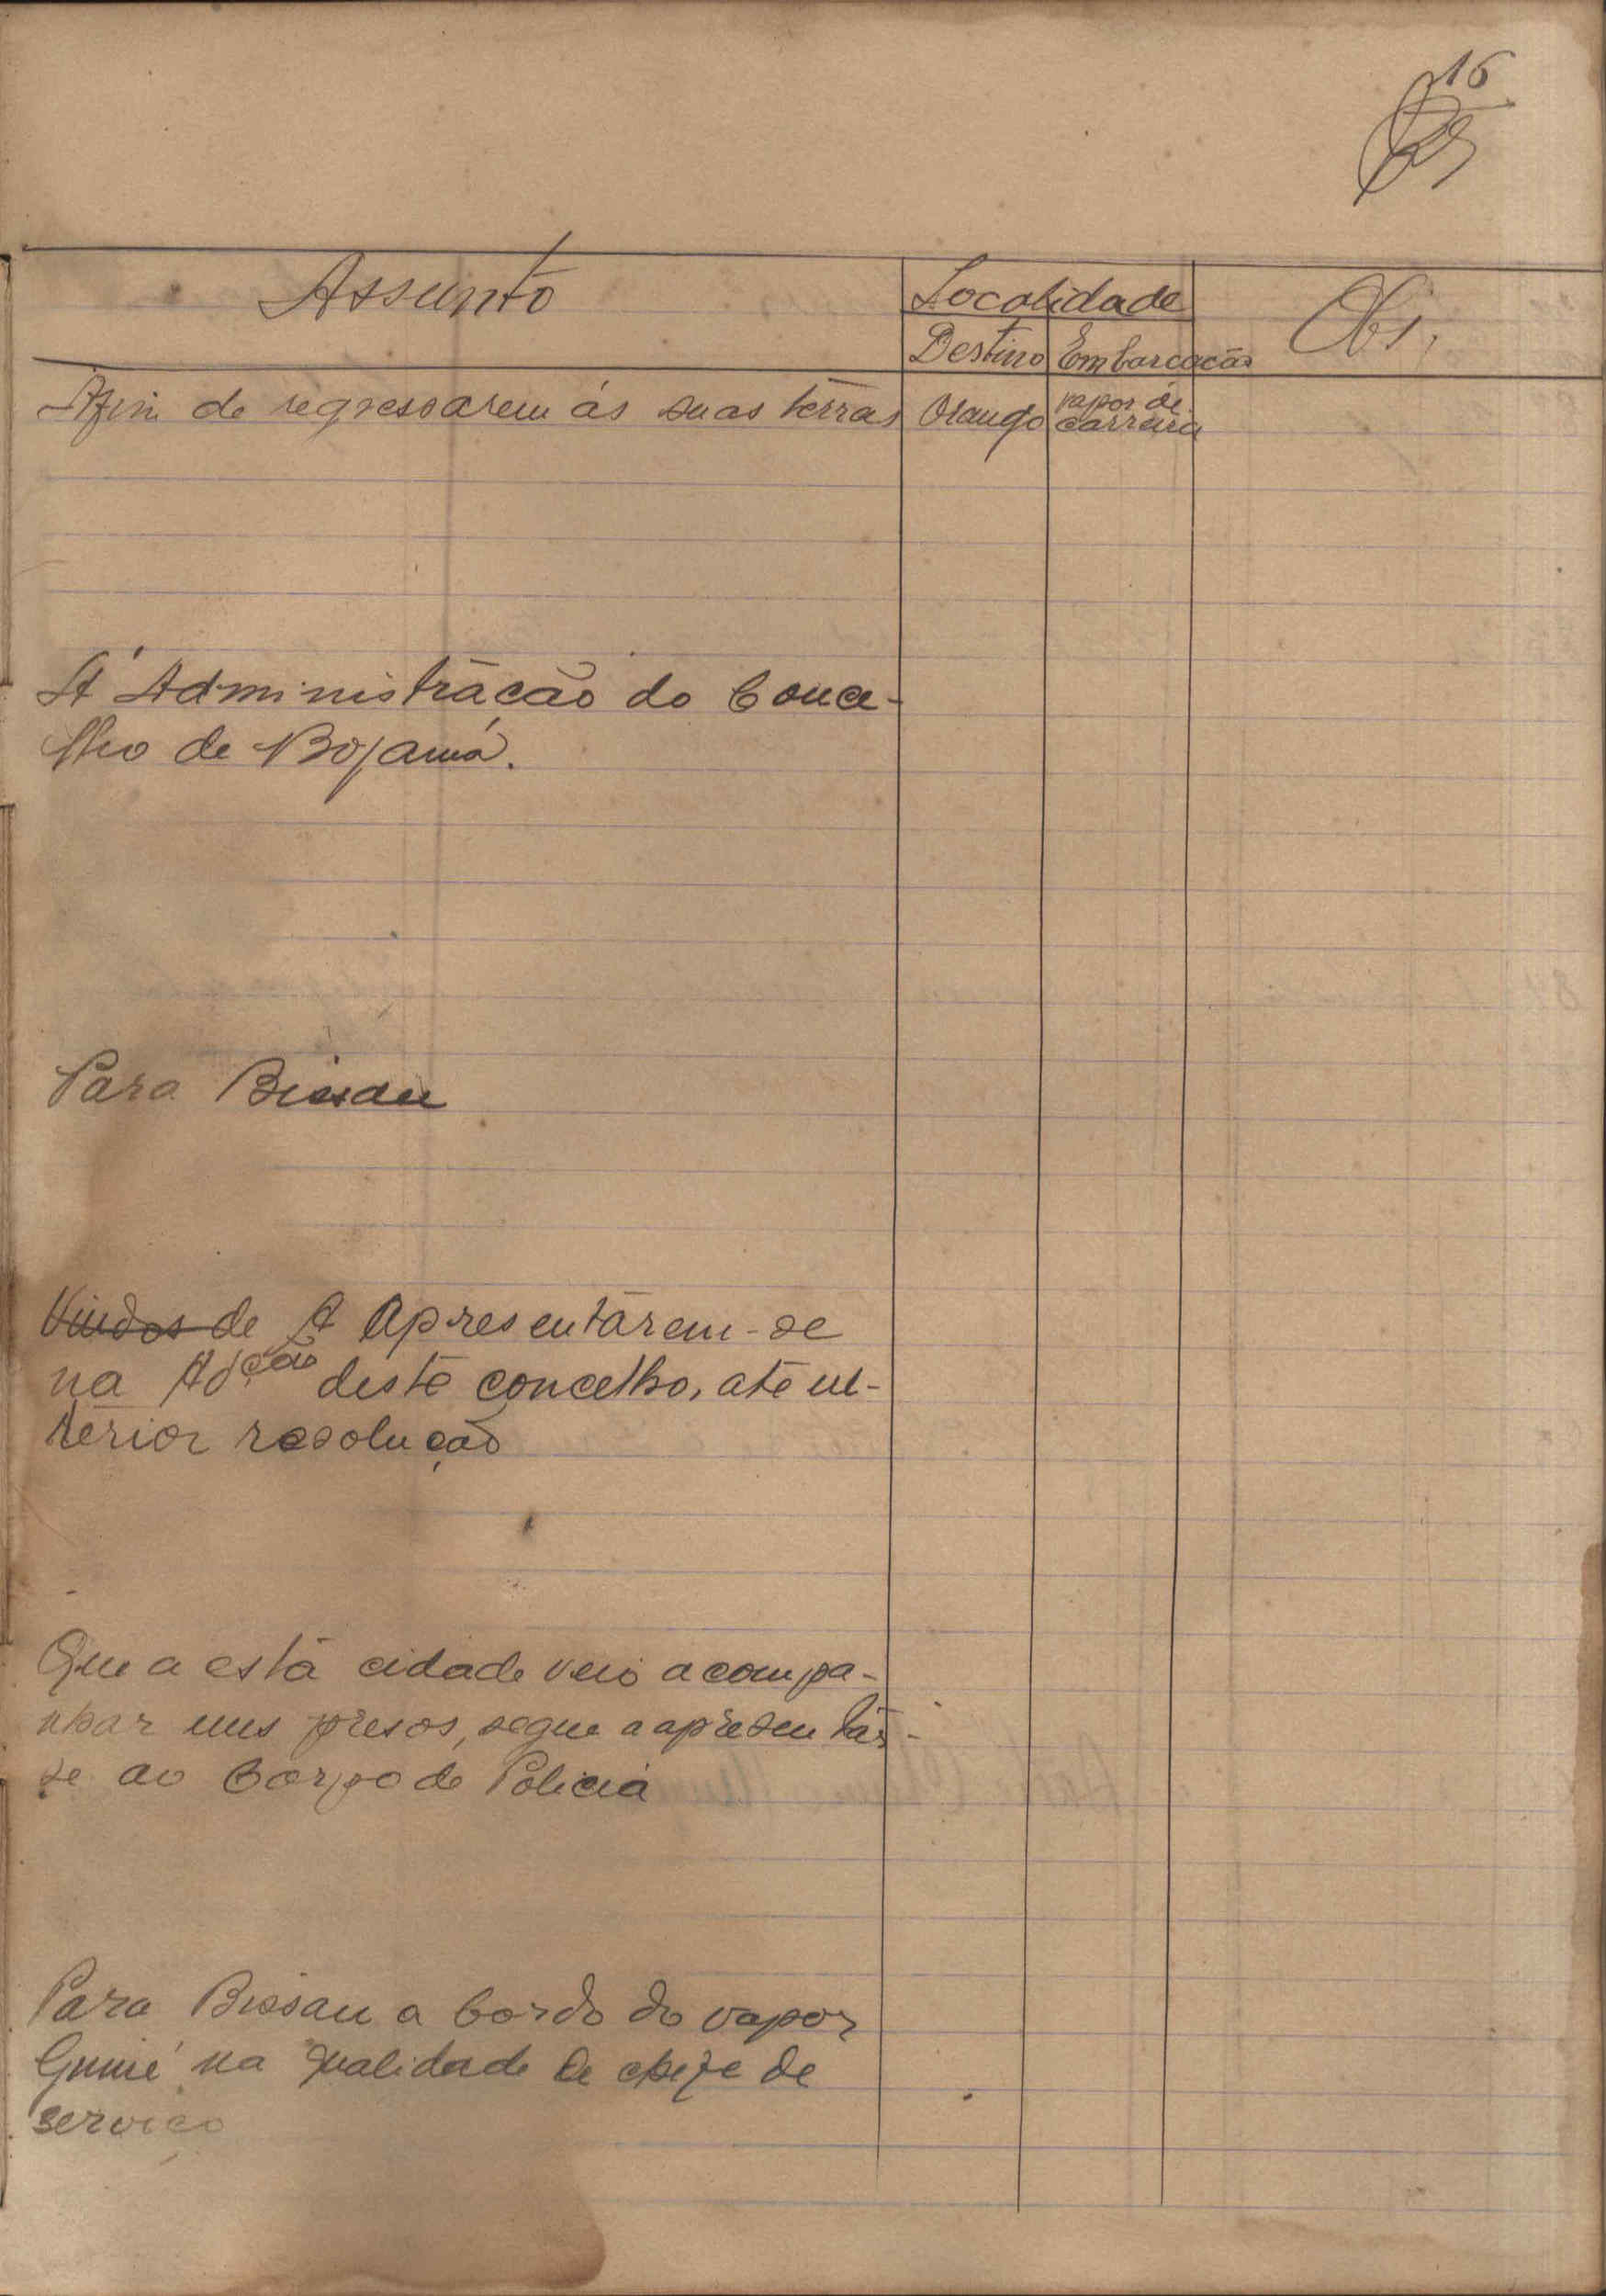 16
Assunto
Localidade
Obs.
Destino
Embarcação
Afim de regressarem ás suas terras
Orango
vapor de
carreira
A' Administração do Conce-
lho de Bojamá.
Para Bissau
Vindos de A Apresentarem-se
na Adção deste concelho, até ul-
terior resolução
Que a esta cidade veio acompa-
nhar uns presos, segue a apresentar-
se ao Corpo de Policia
Para Bissau a bordo do vapor
Guiné na qualidade de chefe de
serviço